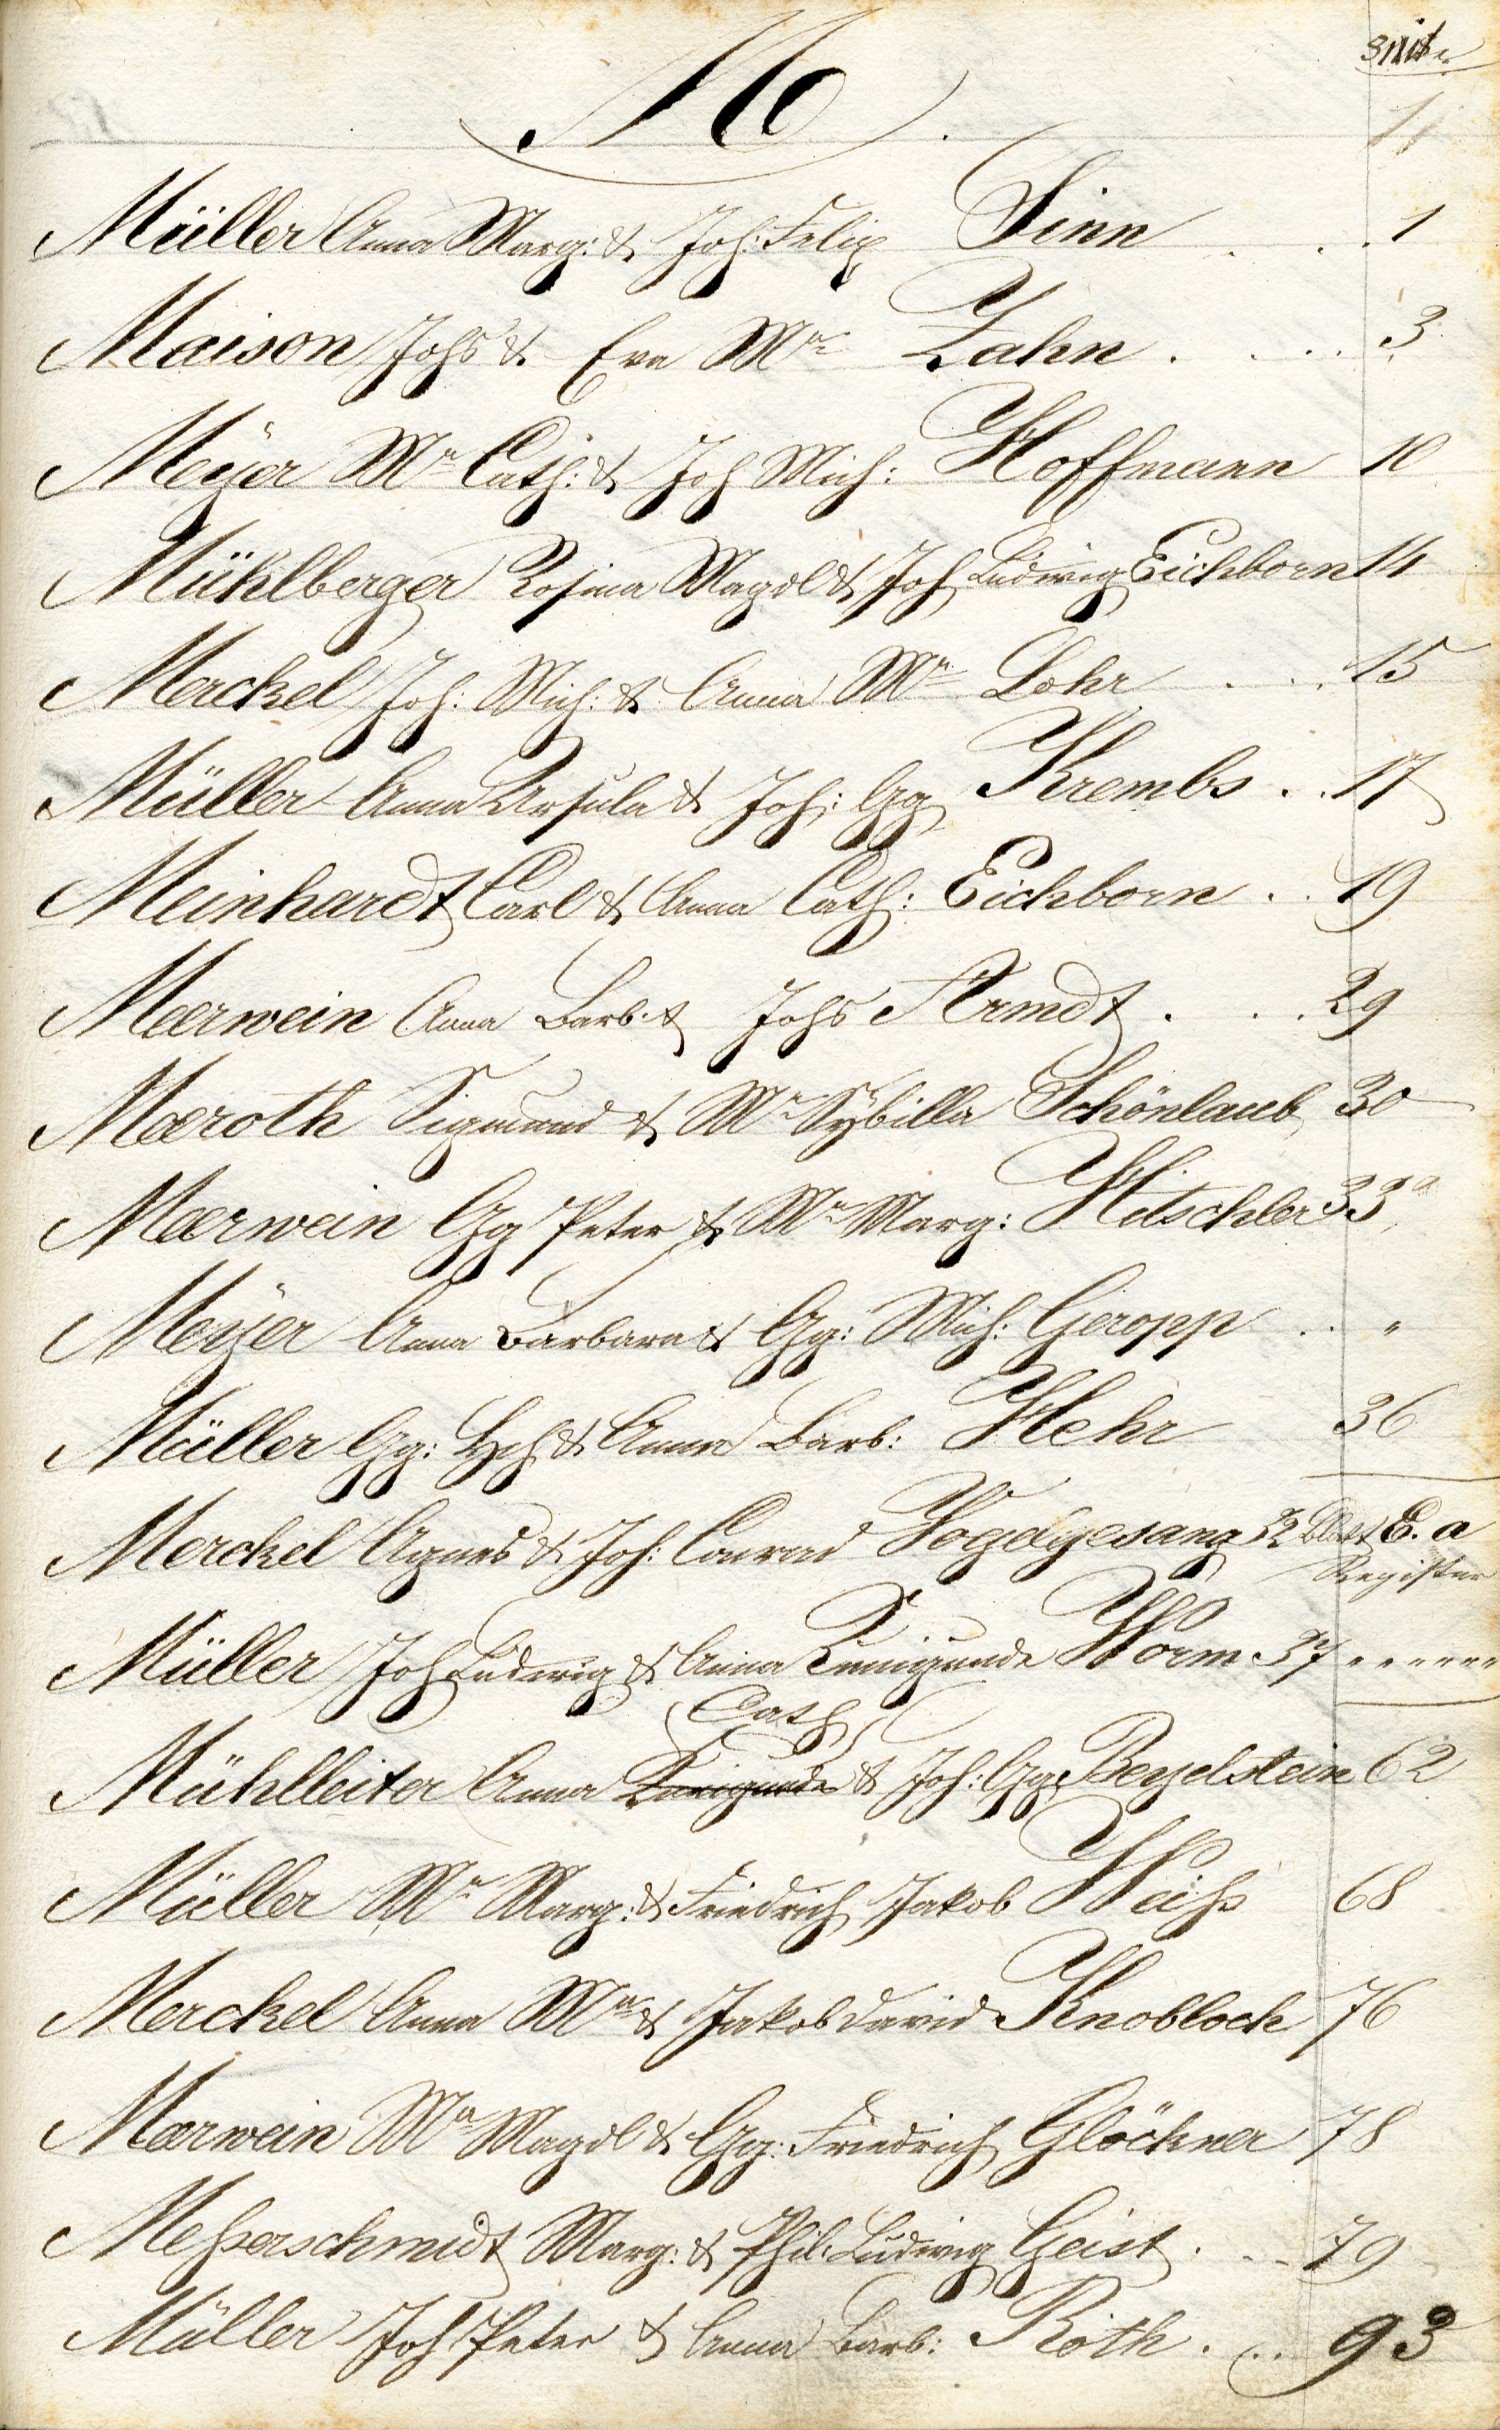 Seite
M.
Müller Anna Marg: & Joh: Felix Sinn . . . 1
Maison Johs & Eva Mra Zahn . . . . 3
Meÿer Ma Cath: & Joh Mich: Hoffmann 10
Mühlberger Rosina Magdl & Joh Ludwig Eichborn 14
Merckel Joh: Mich: & Anna Ma Lohr . . . 15
Müller Anna Ursula & Joh: Gg Krembs . . 17
Meinhardt Carl & Anna Cath: Eichborn . . 19
Maerwein Anna Barb. & Johs Armdt . . . 29
Maeroth Sigmund & Ma Sÿbilla Schönlaub 30
Maerwein Gg Peter & Ma Marg: Hitschler 33a
Meÿer Anna Barbara & Gg: Mich: Geropp . . "
Müller Gg: Hch & Anna Barb: Hehr 36
Merckel Agnes & Joh: Conrad Vogelgesang 32 E. a
Register
Müller Joh Ludwig & Anna Kunigunde Worm 37 " " " " " "
Cath
Mühlleiter Anna Kunigunde & Joh: Gg Beyelstein 62
Müller Ma Marg: & Friedrich Jakob Weiß 68
Merckel Anna Ma & Jakob David Knobloch 76
Maerwein Ma Magdl & Gg: Friedrich Glöckner 78
Meßerschmidt Marg: & Phil: Ludwig Geist . . . 79
Müller Joh Peter & Anna Barb: Roth . . . 93